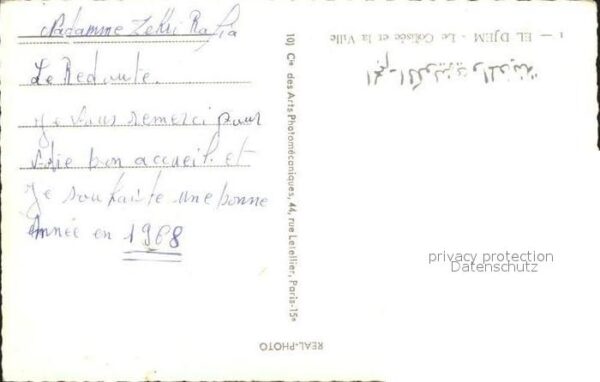 Madamme Zekri Rafia
La Redoute.
je vous remerci pour
votre bon accueil. et
je souhaite une bonne
Année en 1968
10) Cie des Arts Photomécaniques, 44, rue Letellier, Paris-15e
1 — EL DJEM - Le Colisée et la Ville
REAL-PHOTO
privacy protection
Datenschutz